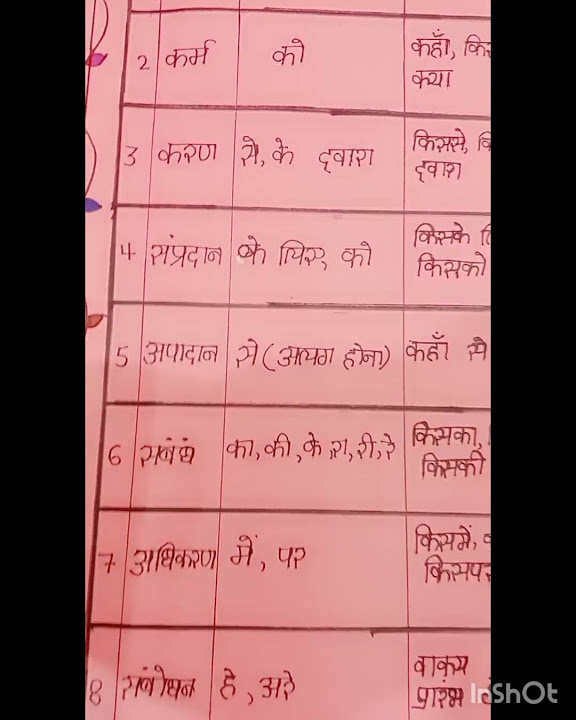 2 कर्म को कहाँ,
क्या
3 करण से, के द्वारा किससे,
द्वारा
4 संप्रदान के लिए, को किसके
किसको
5 अपादान से (अलग होना) कहाँ से
6 सबंधं का, की, के, रा, री, रे किसका,
किसकी
7 अधिकरण में, पर किसमें,
किसपर
8 सबंोधन हे, अरे वाक्य
प्रारंभ
InShOt